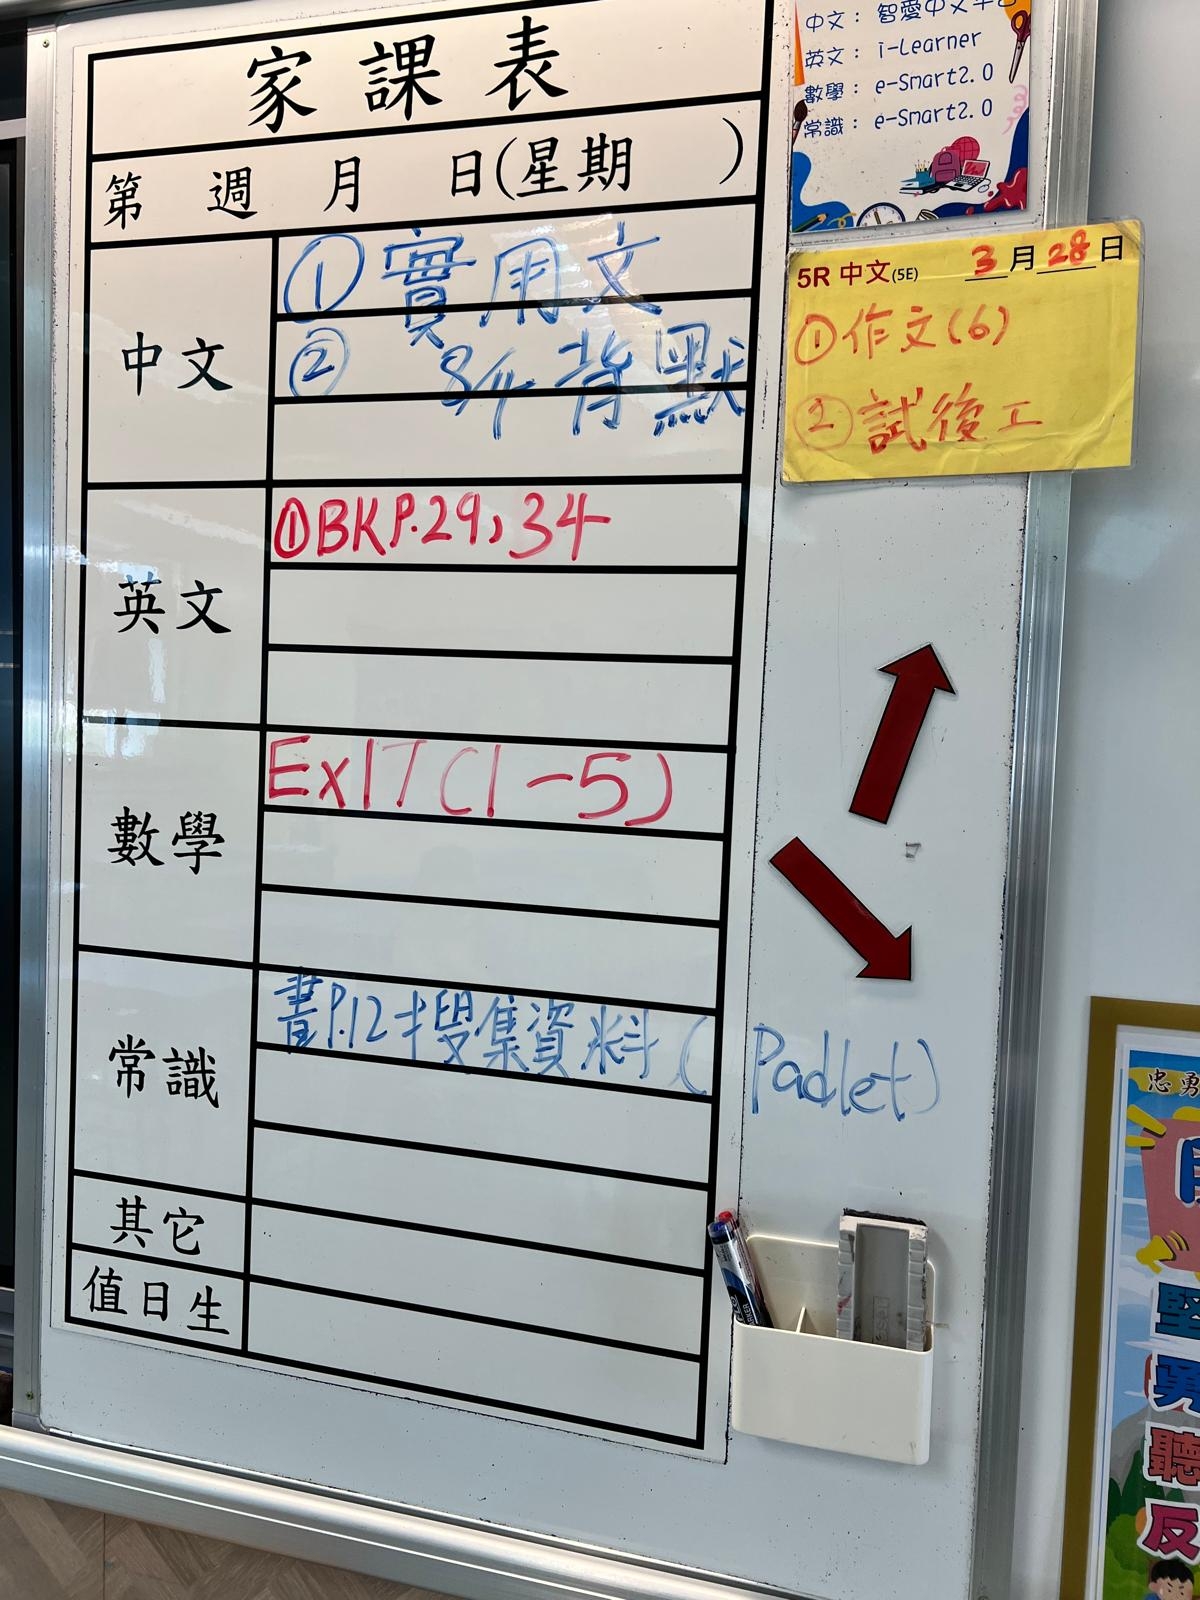 家課表
第 週 月 日(星期 )
中文
①實用文
② 8作背默
英文
①BKP.29,34
數學
Ex17(1-5)
常識
書P.12搜集資料(Padlet)
其它
值日生
中文： 智愛中文平台
英文： i-Learner
數學： e-Smart2.0
常識： e-Smart2.0
5R 中文(5E) 3月28日
①作文(6)
②試後工
忠勇
堅
勇
聽
反